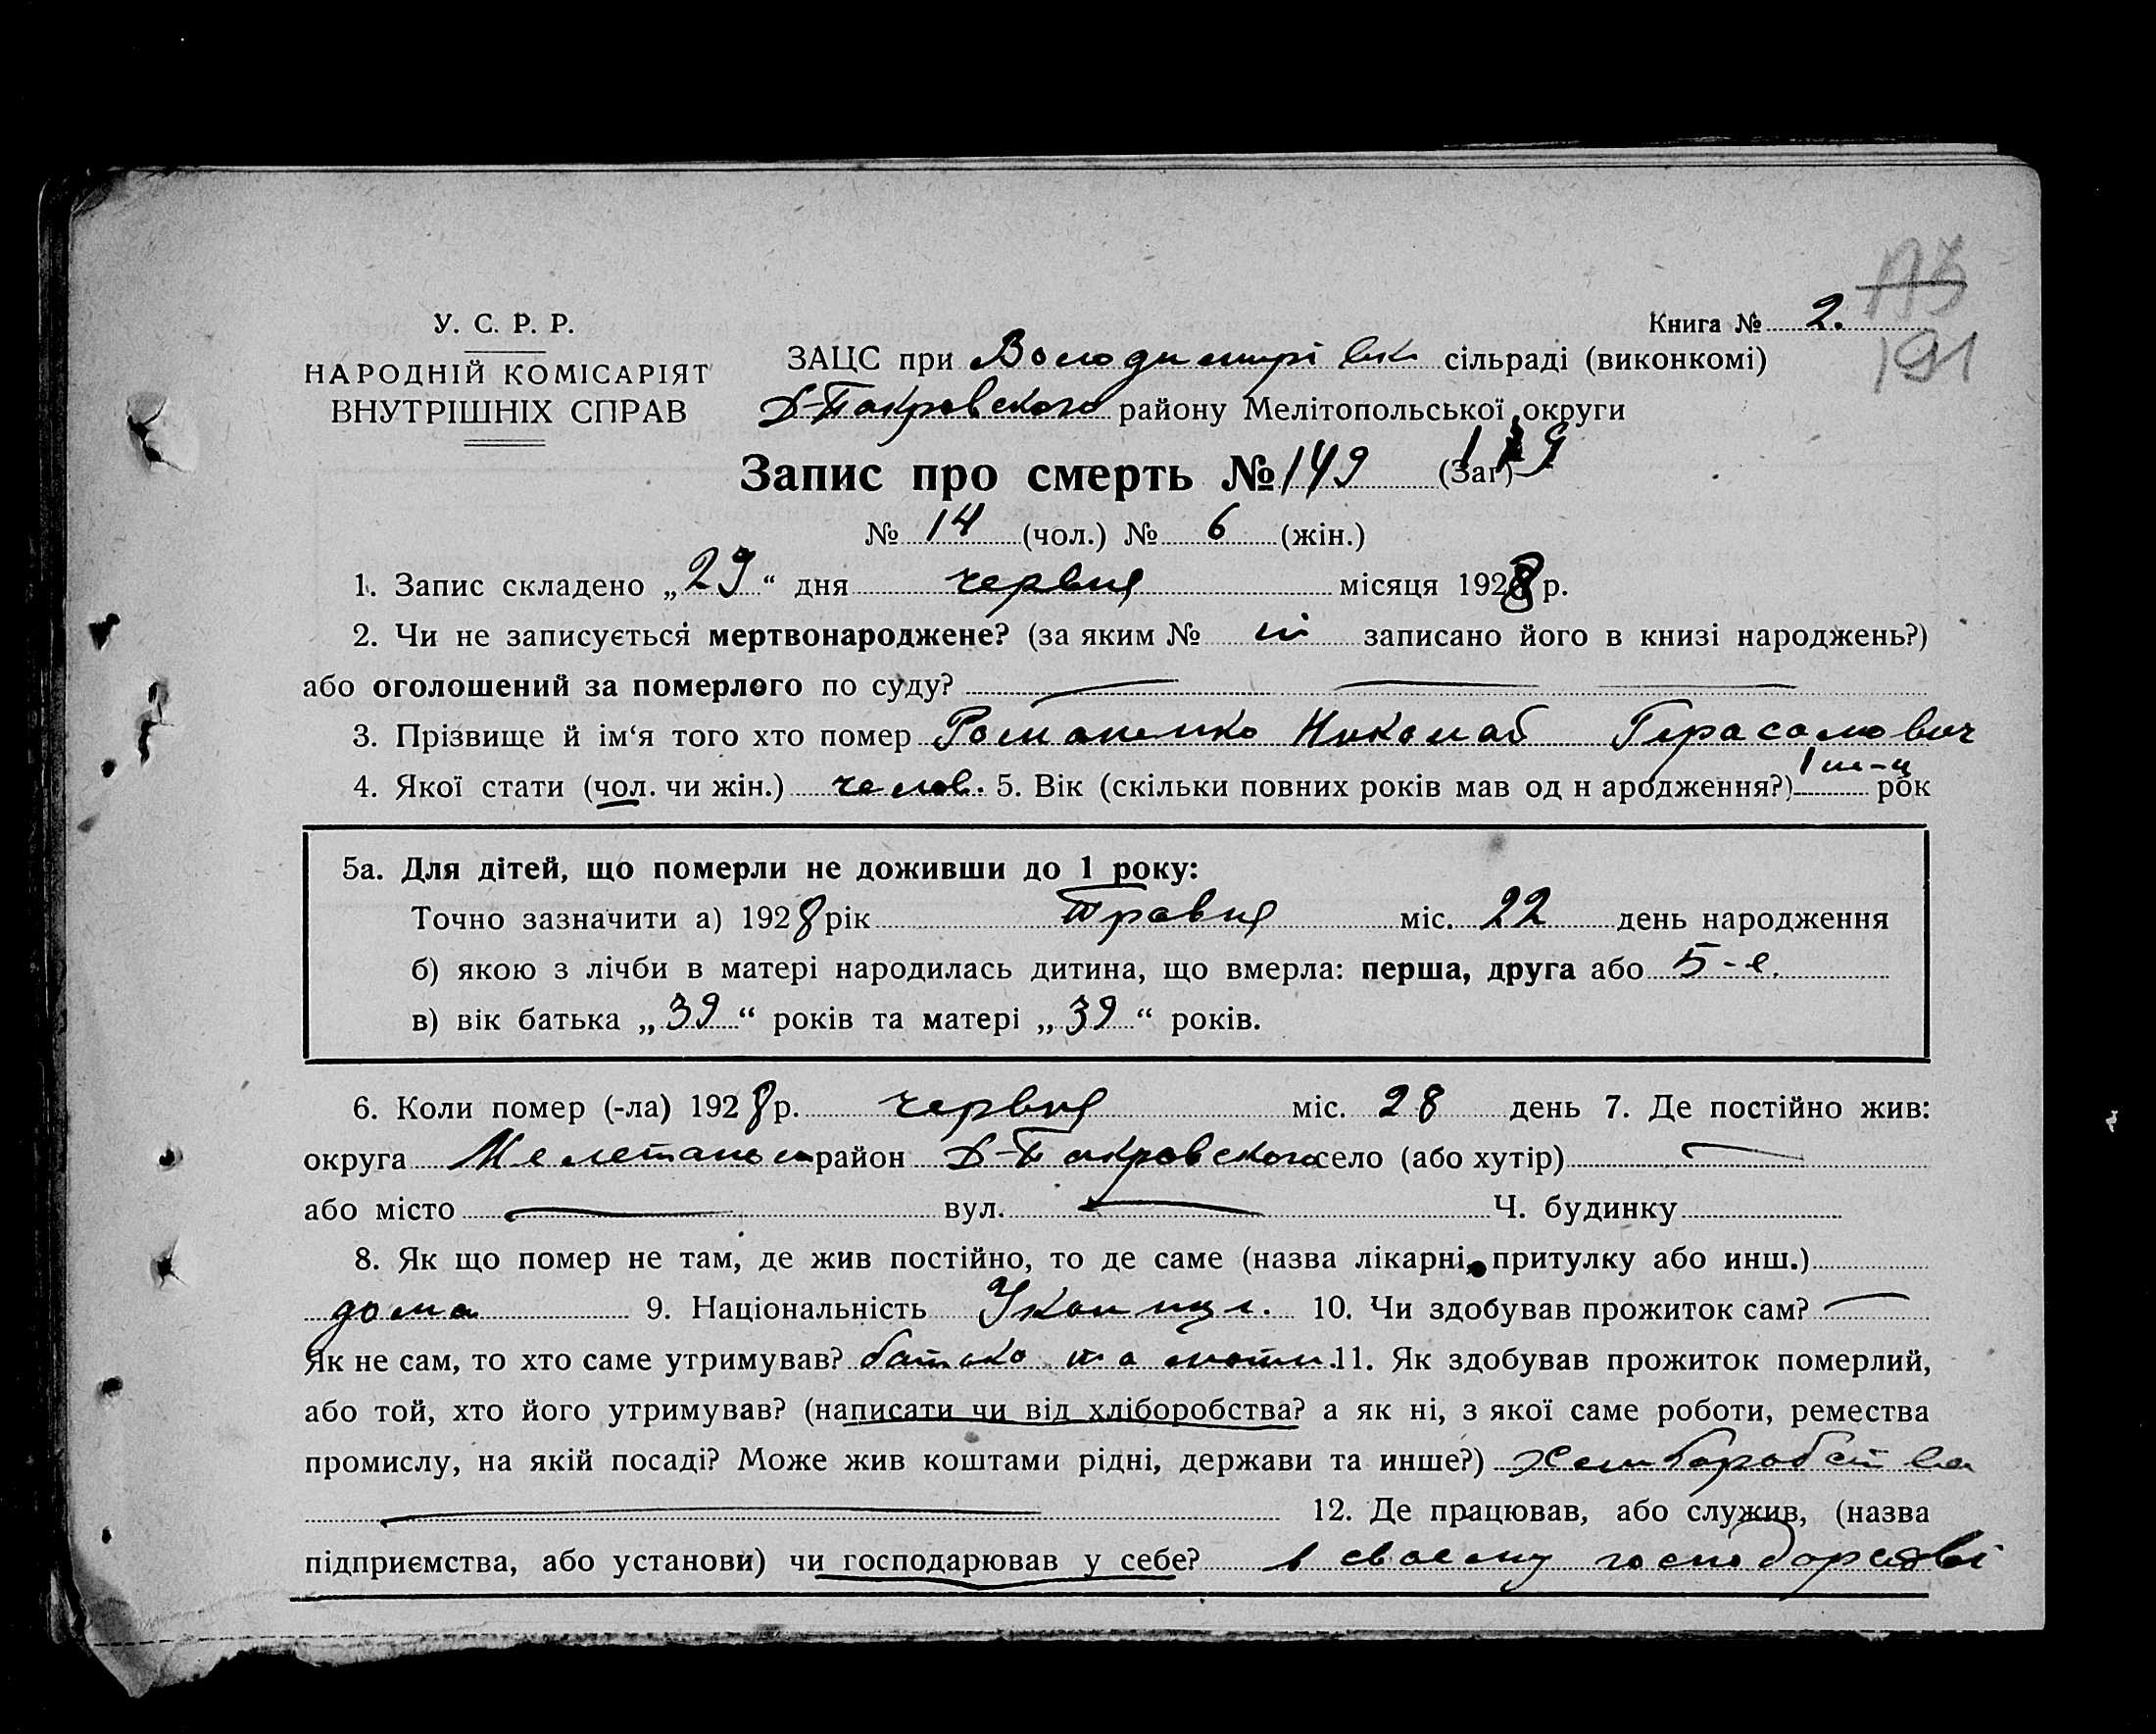 173
191
Книга № 2.
У. С. Р. Р.
НАРОДНІЙ КОМІСАРІЯТ
ВНУТРІШНІХ СПРАВ
ЗАЦС при Володимирівск сільраді (виконкомі)
Д-Покровского району Мелітопольської округи
Запис про смерть № 149 (Заг)
№ 14 (чол.) № 6 (жін.)
1. Запис складено „29“ дня червця місяця 1928 р.
2. Чи не записується мертвонароджене? (за яким № ні записано його в книзі народжень?)
або оголошений за померлого по суду?
3. Прізвище й ім‘я того хто помер Романенко Николаб Герасамович
4. Якої стати (чол. чи жін.) челов. 5. Вік (скільки повних років мав од н ародження?) 1 м-ц рок
5а. Для дітей, що померли не доживши до 1 року:
Точно зазначити а) 1928 рік травця міс. 22 день народження
б) якою з лічби в матері народилась дитина, що вмерла: перша, друга або 5-е.
в) вік батька „39“ років та матері „39“ років.
6. Коли помер (-ла) 1928 р. червця міс. 28 день 7. Де постійно жив:
округа район Д-Покровского село (або хутір)
або місто вул. Ч. будинку
8. Як що помер не там, де жив постійно, то де саме (назва лікарні, притулку або инш.)
дома 9. Національність 10. Чи здобував прожиток сам?
Як не сам, то хто саме утримував? батько та мати. 11. Як здобував прожиток померлий,
або той, хто його утримував? (написати чи від хліборобства? а як ні, з якої саме роботи, ремества
промислу, на якій посаді? Може жив коштами рідні, держави та инше?)
12. Де працював, або служив, (назва
підприємства, або установи) чи господарював у себе? в своему господарстві